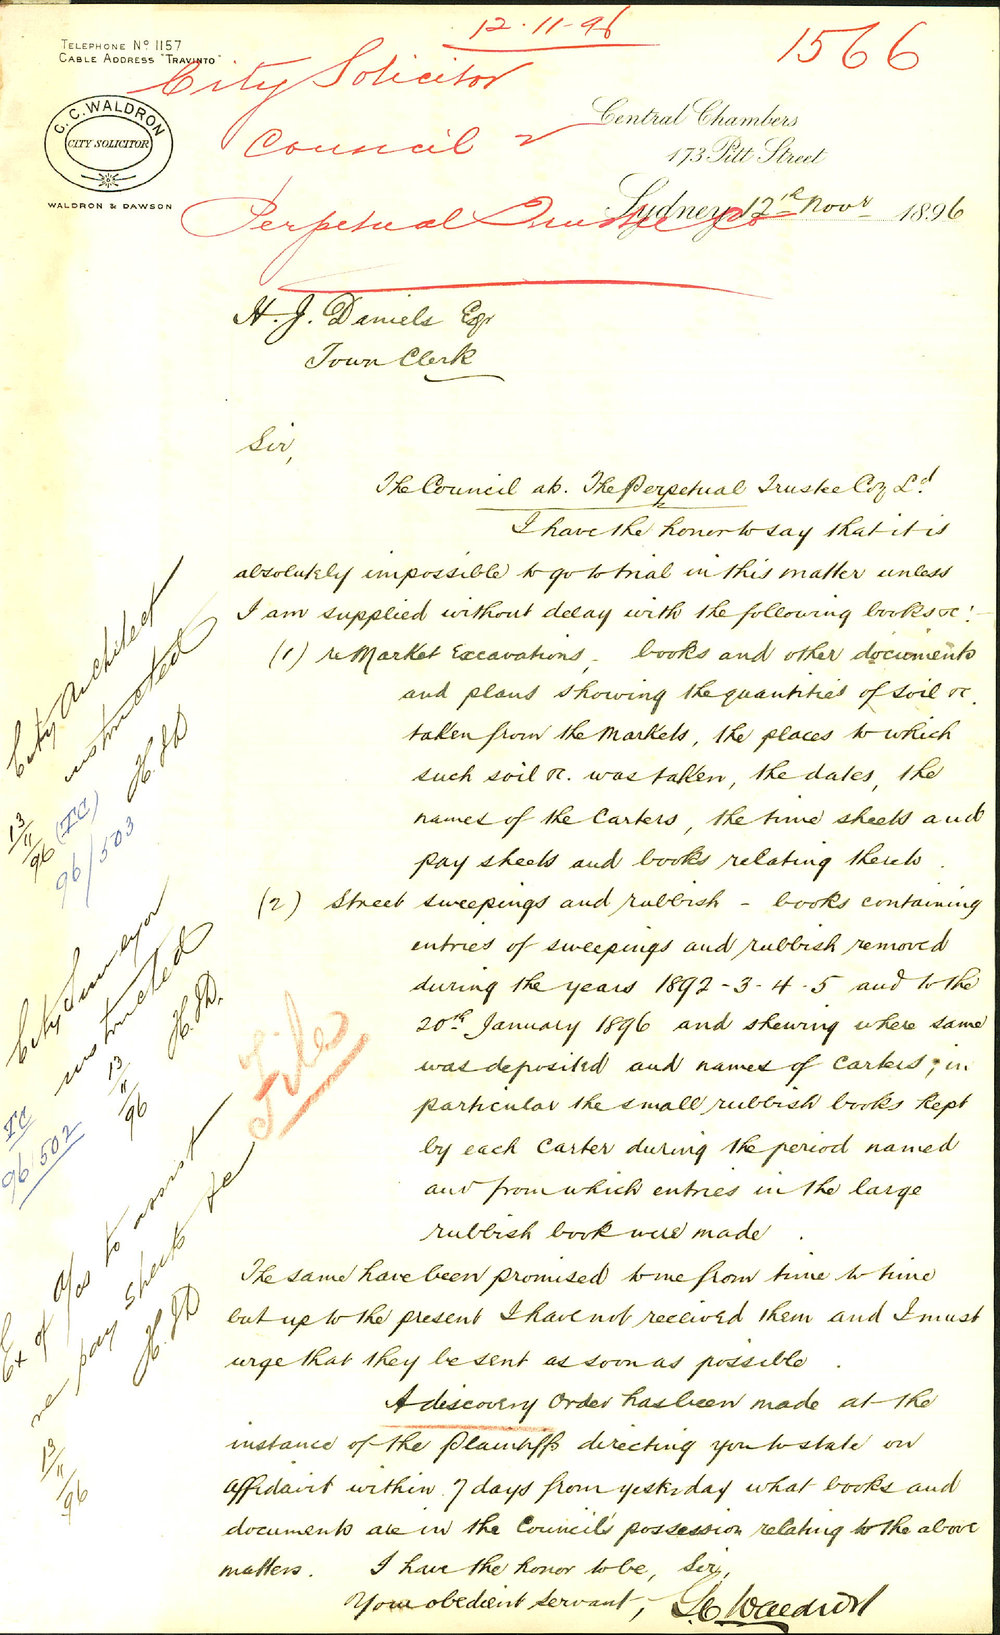 12.11.96
1566
TELEPHONE No 1157
CABLE ADDRESS "TRAVINTO"
City Solicitor
Council v
Perpetual Trustee Co
C. C. WALDRON
CITY SOLICITOR
WALDRON & DAWSON
Central Chambers
173 Pitt Street
Sydney 12th Novr 1896
H. J. Daniels Esqr
Town Clerk
Sir,
The Council ats. The Perpetual Trustee Coy Ld.
I have the honor to say that it is
absolutely impossible to go to trial in this matter unless
I am supplied without delay with the following books &c:-
(1) re Market Excavations - books and other documents
and plans showing the quantities of soil &c.
taken from the Markets, the places to which
such soil &c. was taken, the dates, the
names of the Carters, the time sheets and
pay sheets and books relating thereto.
(2) Street sweepings and rubbish - books containing
entries of sweepings and rubbish removed
during the years 1892-3-4-5 and to the
20th January 1896 and shewing where same
was deposited and names of Carters; in
particular the small rubbish books kept
by each Carter during the period named
and from which entries in the large
rubbish book were made.
The same have been promised to me from time to time
but up to the present I have not received them and I must
urge that they be sent as soon as possible.
A discovery Order has been made at the
instance of the Plaintiffs directing you to state on
Affidavit within 7 days from yesterday what books and
documents are in the Council's possession relating to the above
matters. I have the honor to be, Sir,
Your obedient servant,
C C Waldron
City Architect
instructed
H.JD
13/11/96
(TC)
96/503
City Surveyor
instructed
H.JD.
13/11/96
TC
96/502
Ex of A/cs to assist
re pay sheets &c
H.JD
13/11/96
File